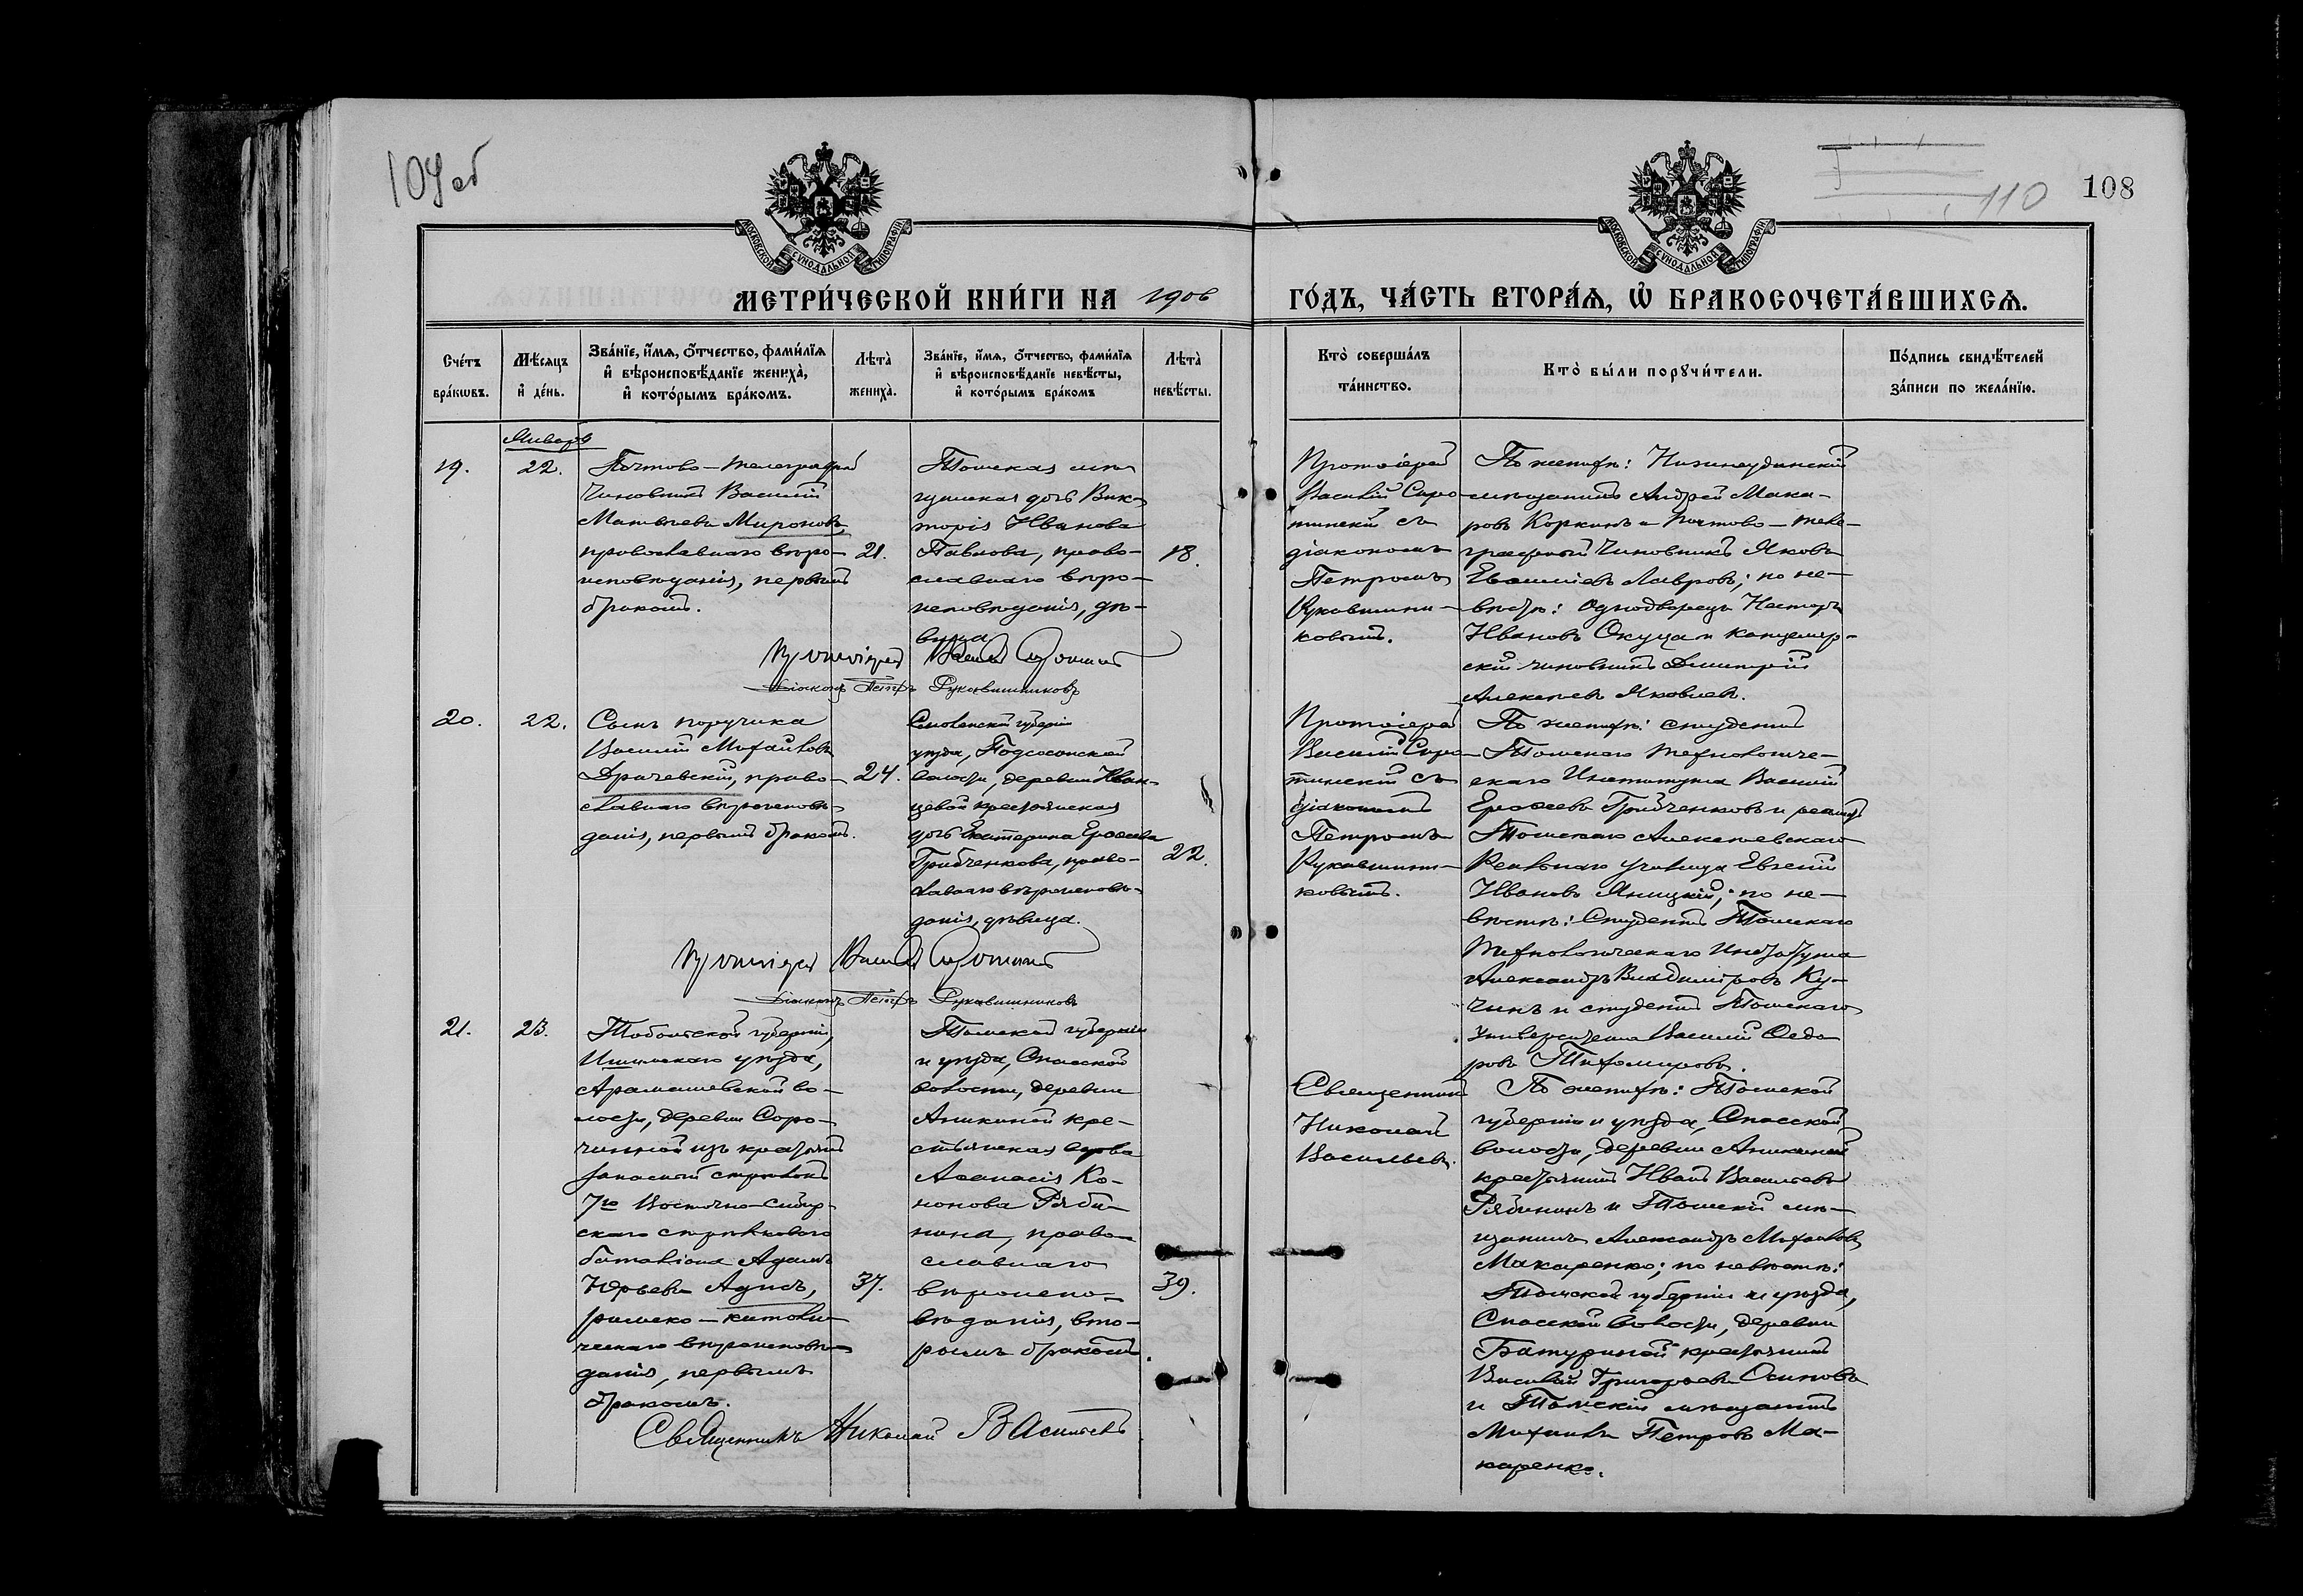 109 об
110
108
МОСКОВСКОЙ СѴНОДАЛЬНОЙ ТИПОГРАФІИ
МОСКОВСКОЙ СѴНОДАЛЬНОЙ ТИПОГРАФІИ
МЕТРИ́ЧЕСКОЙ КНИ́ГИ НА 1906
ГО́ДЪ, ЧА́СТЬ ВТОРА́Ѧ, Ѽ БРАКОСОЧЕТА́ВШИХСѦ.
Сче́тъ бра́кѡвъ.
Мѣ́сѧцъ и҆ де́нь.
Зва́нїе, и҆́мѧ, ѻ҆́тчество, фами́лїѧ
и҆ вѣроисповѣ́данїе жениха̀,
и҆ кото́рымъ бра́комъ.
Лѣта̀ жениха̀.
Зва́нїе, и҆́мѧ, ѻ҆́тчество, фами́лїѧ
и҆ вѣроисповѣ́данїе невѣ́сты,
и҆ кото́рымъ бра́комъ
Лѣта̀ невѣ́сты.
Кто̀ соверша́лъ
та́инство.
Кто̀ бы́ли порꙋчи́тели.
По́дпись свидѣ́телей
за́писи по жела́нїю.
Январь
19.
22.
Почтово-телеграфный
Чиновникъ Василій
Матвѣевъ Мироновъ,
православнаго вѣро-
исповѣданія, первымъ
бракомъ.
21.
Томская мѣ-
щанская дочь Вик-
торія Иванова
Павлова, право-
славнаго вѣро-
исповѣданія, дѣ-
вица
18.
Протоіерей
Василій Сиро-
тинскій съ
діакономъ
Петромъ
Рукавишни-
ковымъ.
По женихѣ: Нижнеудинскій
мѣщанинъ Андрей Мака-
ровъ Коркинъ и Почтово-теле-
графный Чиновникъ Яковъ
Лавровъ; по не-
вѣстѣ: Однодворецъ Несторъ
Ивановъ Окуца и канцеляр-
скій чиновникъ Дмитрій
Алексѣевъ Яковлевъ.
Протоіерей Василій Сиротинскій
Діаконъ Петръ Рукавишниковъ
20.
22.
Сынъ поручика
Василій Михайловъ
Драчевскій, право-
славнаго вѣроисповѣ-
данія, первымъ бракомъ.
24.
Смоленской губерніи
уѣзда, Подсосонской
волости, деревни Иван-
цевой крестьянская
дочь Екатерина Ерофеева
Грибченкова, право-
славнаго вѣроисповѣ-
данія, дѣвица.
22.
Протоіерей
Василій Сиро-
тинскій съ
діакономъ
Петромъ
Рукавишни-
ковымъ.
По женихѣ: студентъ
Томскаго Технологиче-
скаго Института Василій
Ерофеевъ Грибченковъ и реалистъ
Томскаго Алексѣевскаго
Реальнаго училища Евгеній
Ивановъ Яницкій; по не-
вѣстѣ: Студентъ Томскаго
Технологическаго Института
Александръ Владиміровъ Ку-
чинъ и студентъ Томскаго
Университета Василій Ѳедо
ровъ Тихомировъ.
Протоіерей Василій Сиротинскій
Діаконъ Петръ Рукавишниковъ
21.
23.
Тобольской губерніи,
Ишимскаго уѣзда,
Арамашевской во-
лости, деревни Соро-
чинной изъ крестьянъ
запасный стрѣлокъ
7го Восточно-Сибир-
скаго стрѣлковаго
баталіона Адамъ
Юрьевъ Адусъ,
римско-католи-
ческаго вѣроисповѣ-
данія, первымъ
бракомъ.
37.
Томской губерніи
и уѣзда, Спасской
волости, деревни
Аникиной кре-
стьянская вдова
Аѳанасія Ко-
нонова Ряби-
нина, право
славнаго
вѣроиспо-
вѣданія, вто-
рымъ бракомъ.
39.
Священникъ
Николай
Васильевъ.
По женихѣ: Томской
губерніи и уѣзда, Спасской
волости, деревни Аникиной
крестьянинъ Иванъ Васильевъ
Рябининъ и Томскій мѣ-
щанинъ Александръ Михайловъ
Макаренко; по невѣстѣ:
Томской губерніи и уѣзда,
Спасской волости, деревни
Батуриной крестьянинъ
Василій Григорьевъ Осиповъ
и Томскій мѣщанинъ
Михаилъ Петровъ Ма-
каренко.
Священникъ Николай Васильевъ